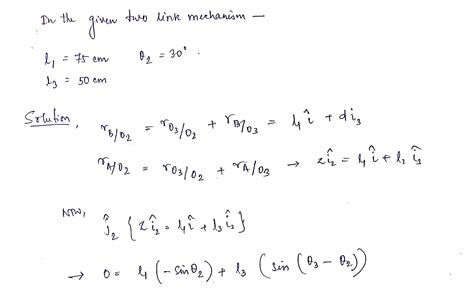 In the given two link mechanism —
l₁ = 75 cm θ₂ = 30° .
l₃ = 50 cm
Solution,
r_B/O₂ = r_O₃/O₂ + r_B/O₃ = l₁ î + d i₃
r_A/O₂ = r_O₃/O₂ + r_A/O₃ → z î₂ = l₁ î + l₃ î₃
Now,
ĵ₂ { z î₂ = l₁ î + l₃ î₃ }
→ 0 = l₁ (- sinθ₂) + l₃ ( sin (θ₃ - θ₂))